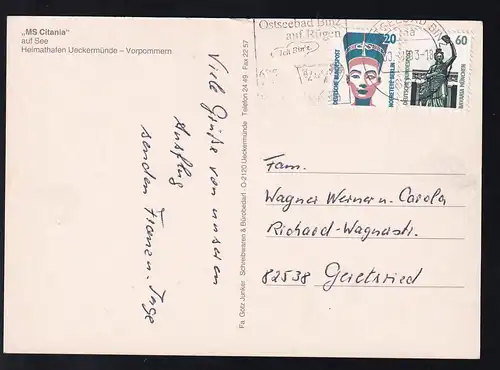 „MS Citania"
auf See
Heimathafen Ueckermünde – Vorpommern
Ostseebad Binz
auf Rügen
20
DEUTSCHE BUNDESPOST
NOFRETETE BERLIN
60
DEUTSCHE BUNDESPOST
BAVARIA MÜNCHEN
Viele Grüße von unseren
Ausflug
senden Franz u. Inge
Fa. Götz Junker Schreibwaren & Bürobedarf O-2120 Ueckermünde Telefon 24 49 Fax 22 57
Fam.
Wagner Werner u. Carola
Richard-Wagnerstr.
82538 Geretsried